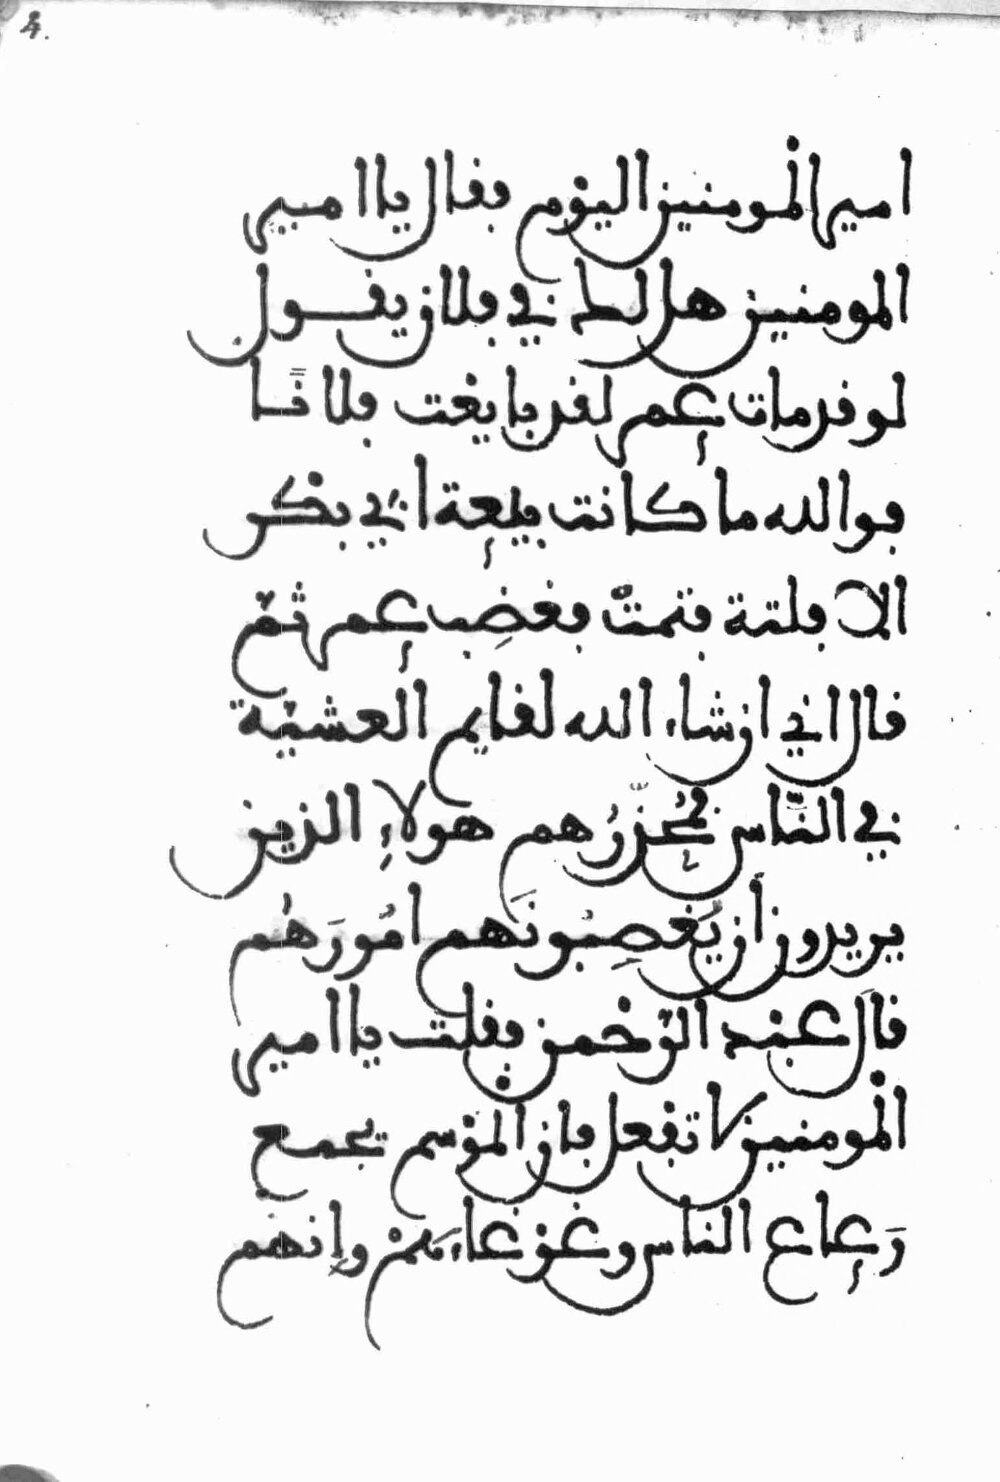 4.
امير المومنين اليوم فقال يا امير
المومنين هل لك في فلان يقول
لو قد مات عمر لقد بايعت فلانا
فوالله ما كانت بيعة ابي بكر
الا فلتة فتمت فغضب عمر ثم
قال اني ان شاء الله لقايم العشية
في الناس فمحذرهم هولاء الذين
يريدون أن يغصبونهم امورهم
قال عبد الرحمن فقلت يا امير
المومنين لا تفعل فان الموسم يجمع
رعاع الناس وغوغاءهم وانهم